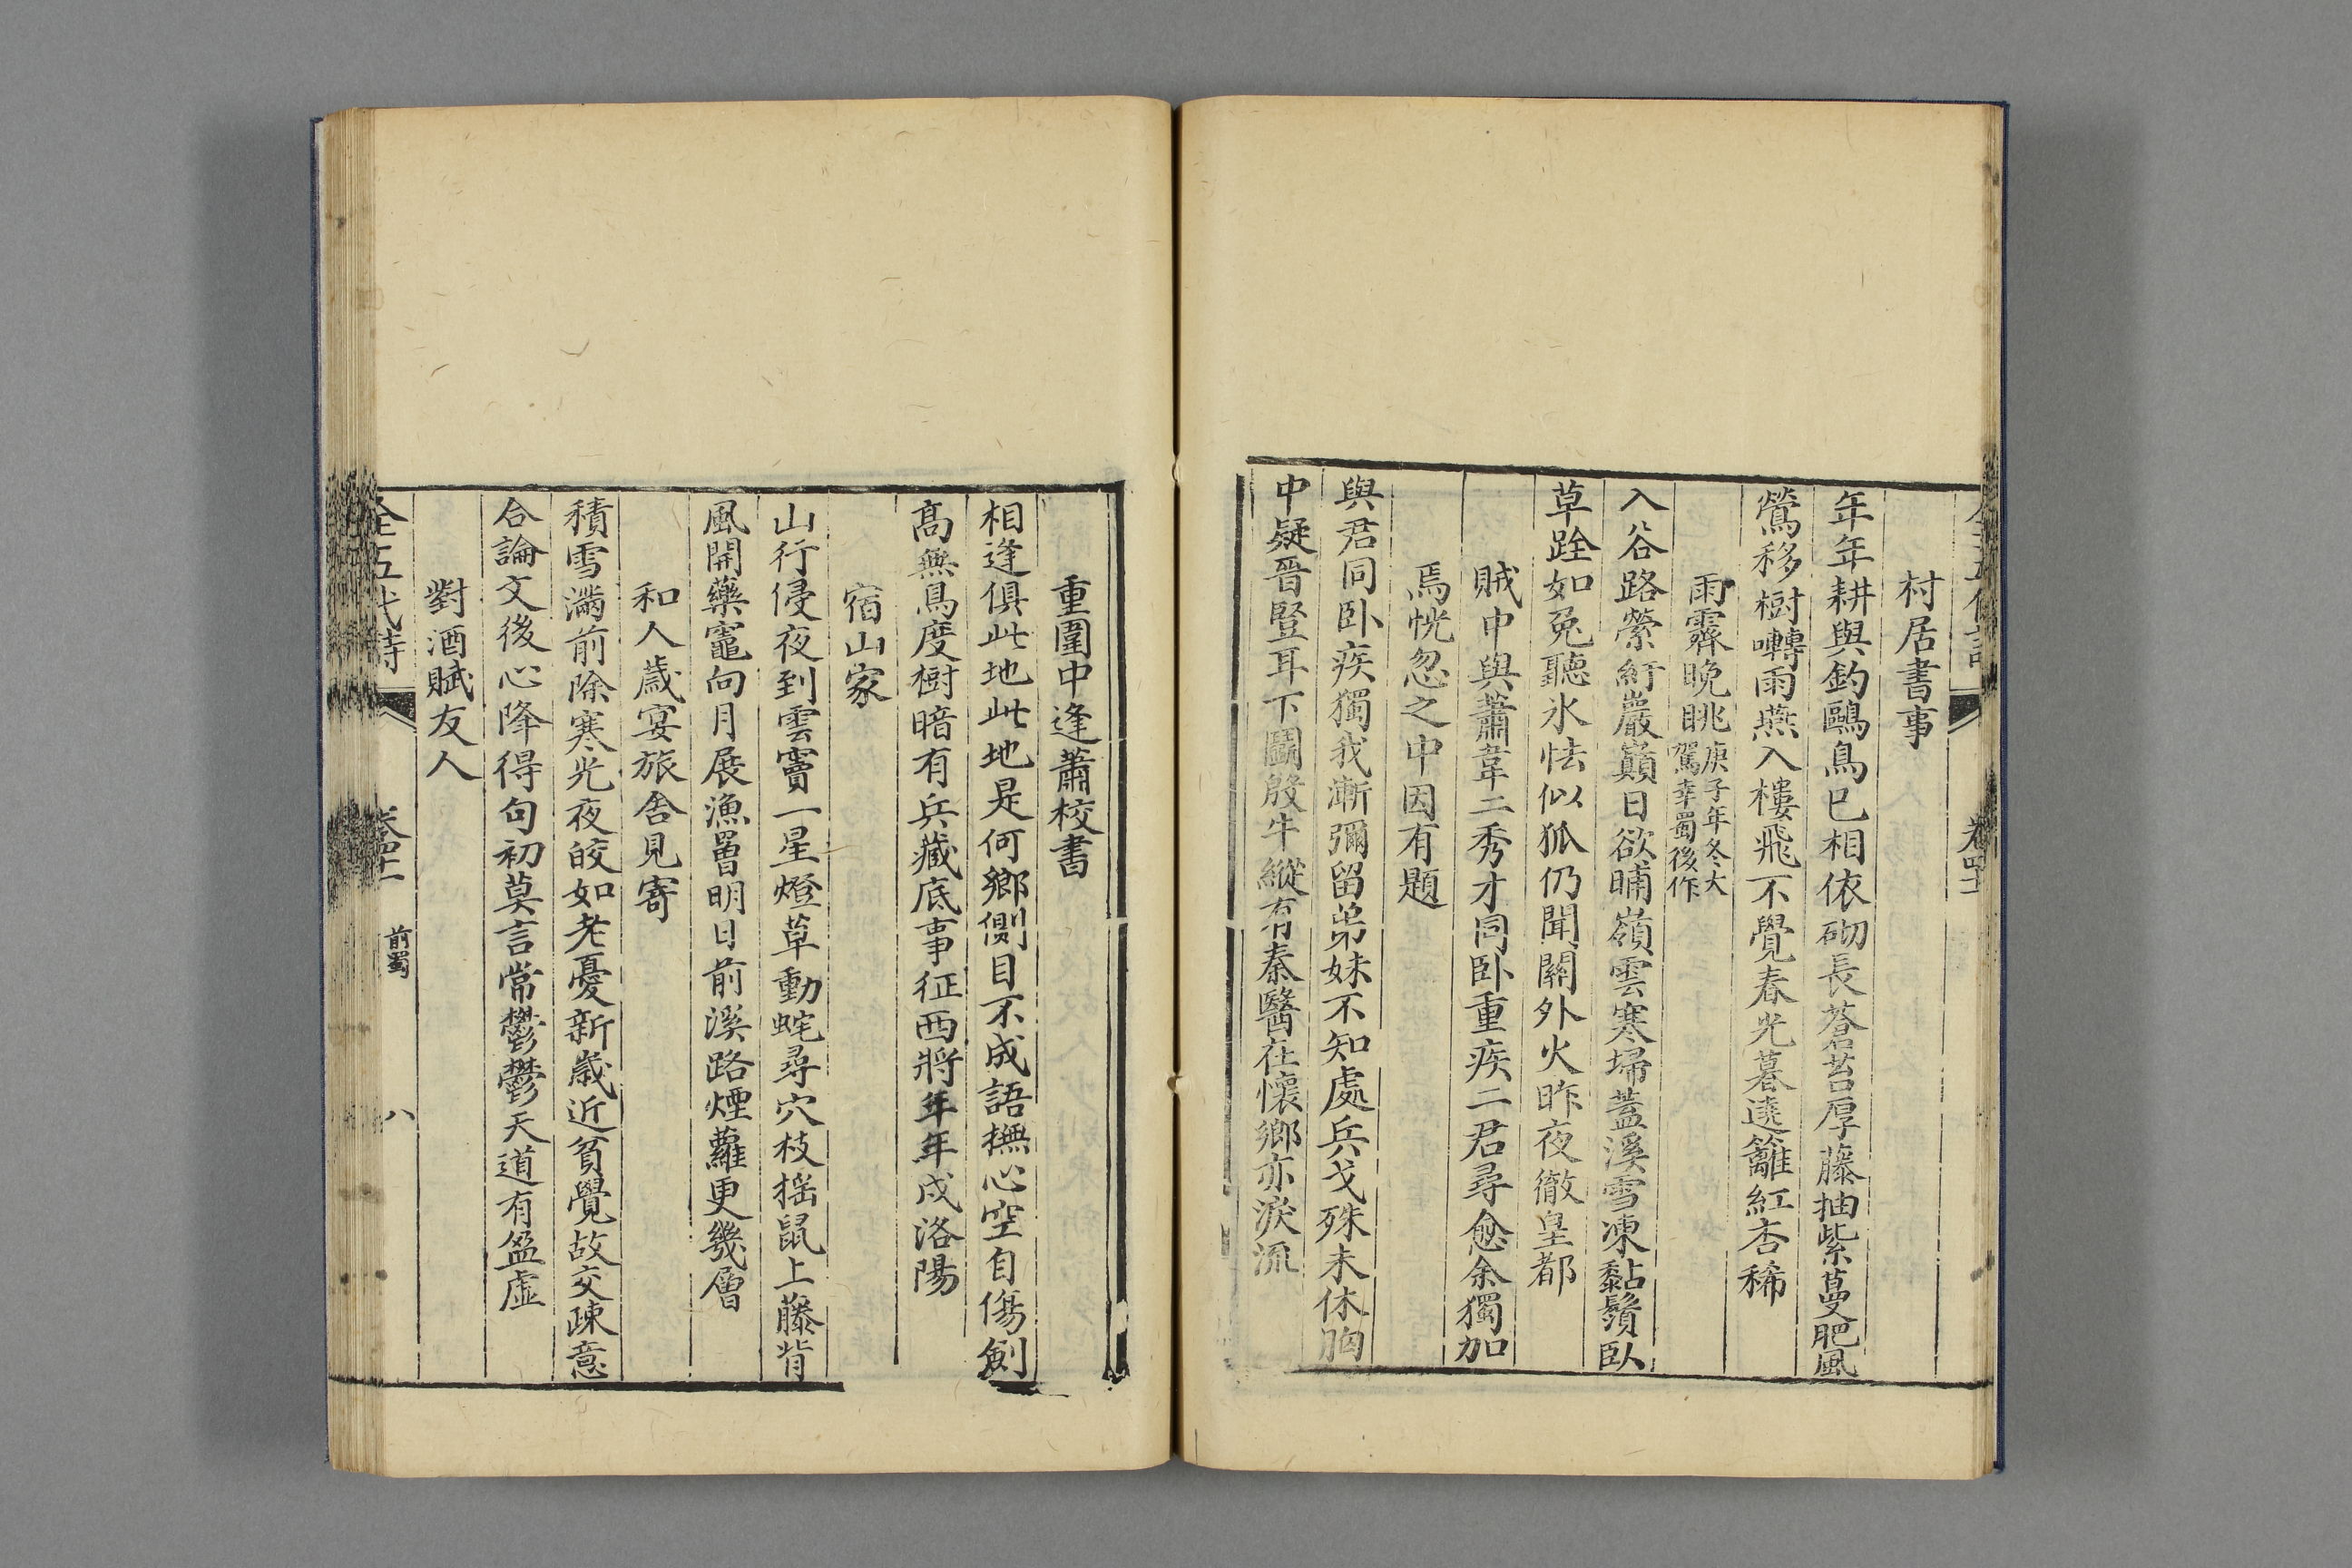 村居書事
年年耕與釣鷗鳥已相依砌長蒼苔厚藤抽紫蔓肥風
鶯移樹囀雨燕入樓飛不覺春光暮遶籬紅杏稀
雨霽晚眺庚子年冬大
駕幸蜀後作
入谷路縈紆巖巔日欲晡嶺雲寒埽蓋溪雪凍黏鬚臥
草跧如兔聽氷怯似狐仍聞關外火昨夜徹皇都
賊中與蕭韋二秀才同卧重疾二君尋愈余獨加
焉恍忽之中因有題
與君同卧疾獨我漸彌留弟妹不知處兵戈殊未休胸
中疑晉豎耳下鬬殷牛縱有秦醫在懷鄉亦淚流
重圍中逢蕭校書
相逢俱此地此地是何鄉側目不成語撫心空自傷劍
高無鳥度樹暗有兵藏底事征西將年年戍洛陽
宿山家
山行侵夜到雲竇一星燈草動蛇尋穴枝搖鼠上藤背
風開藥竈向月展漁罾明日前溪路煙蘿更幾層
和人歲宴旅舍見寄
積雪滿前除寒光夜皎如老憂新歲近貧覺故交疎意
合論文後心降得句初莫言常鬱鬱天道有盈虛
對酒賦友人
全五代詩
卷四十一
前蜀
八